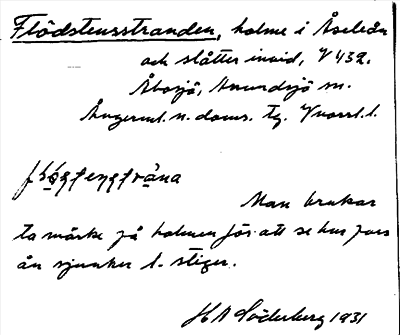 Flödstensstranden, holme i Åseleån
och slåtter invid, V 432.
Åbosjö, Anundsjö sn.
Ångerml. n. doms. tg. Vnorrl. l.
Man brukar
ta märke på holmen för att se hur pass
ån sjunker l. stiger.
H A Söderberg 1931